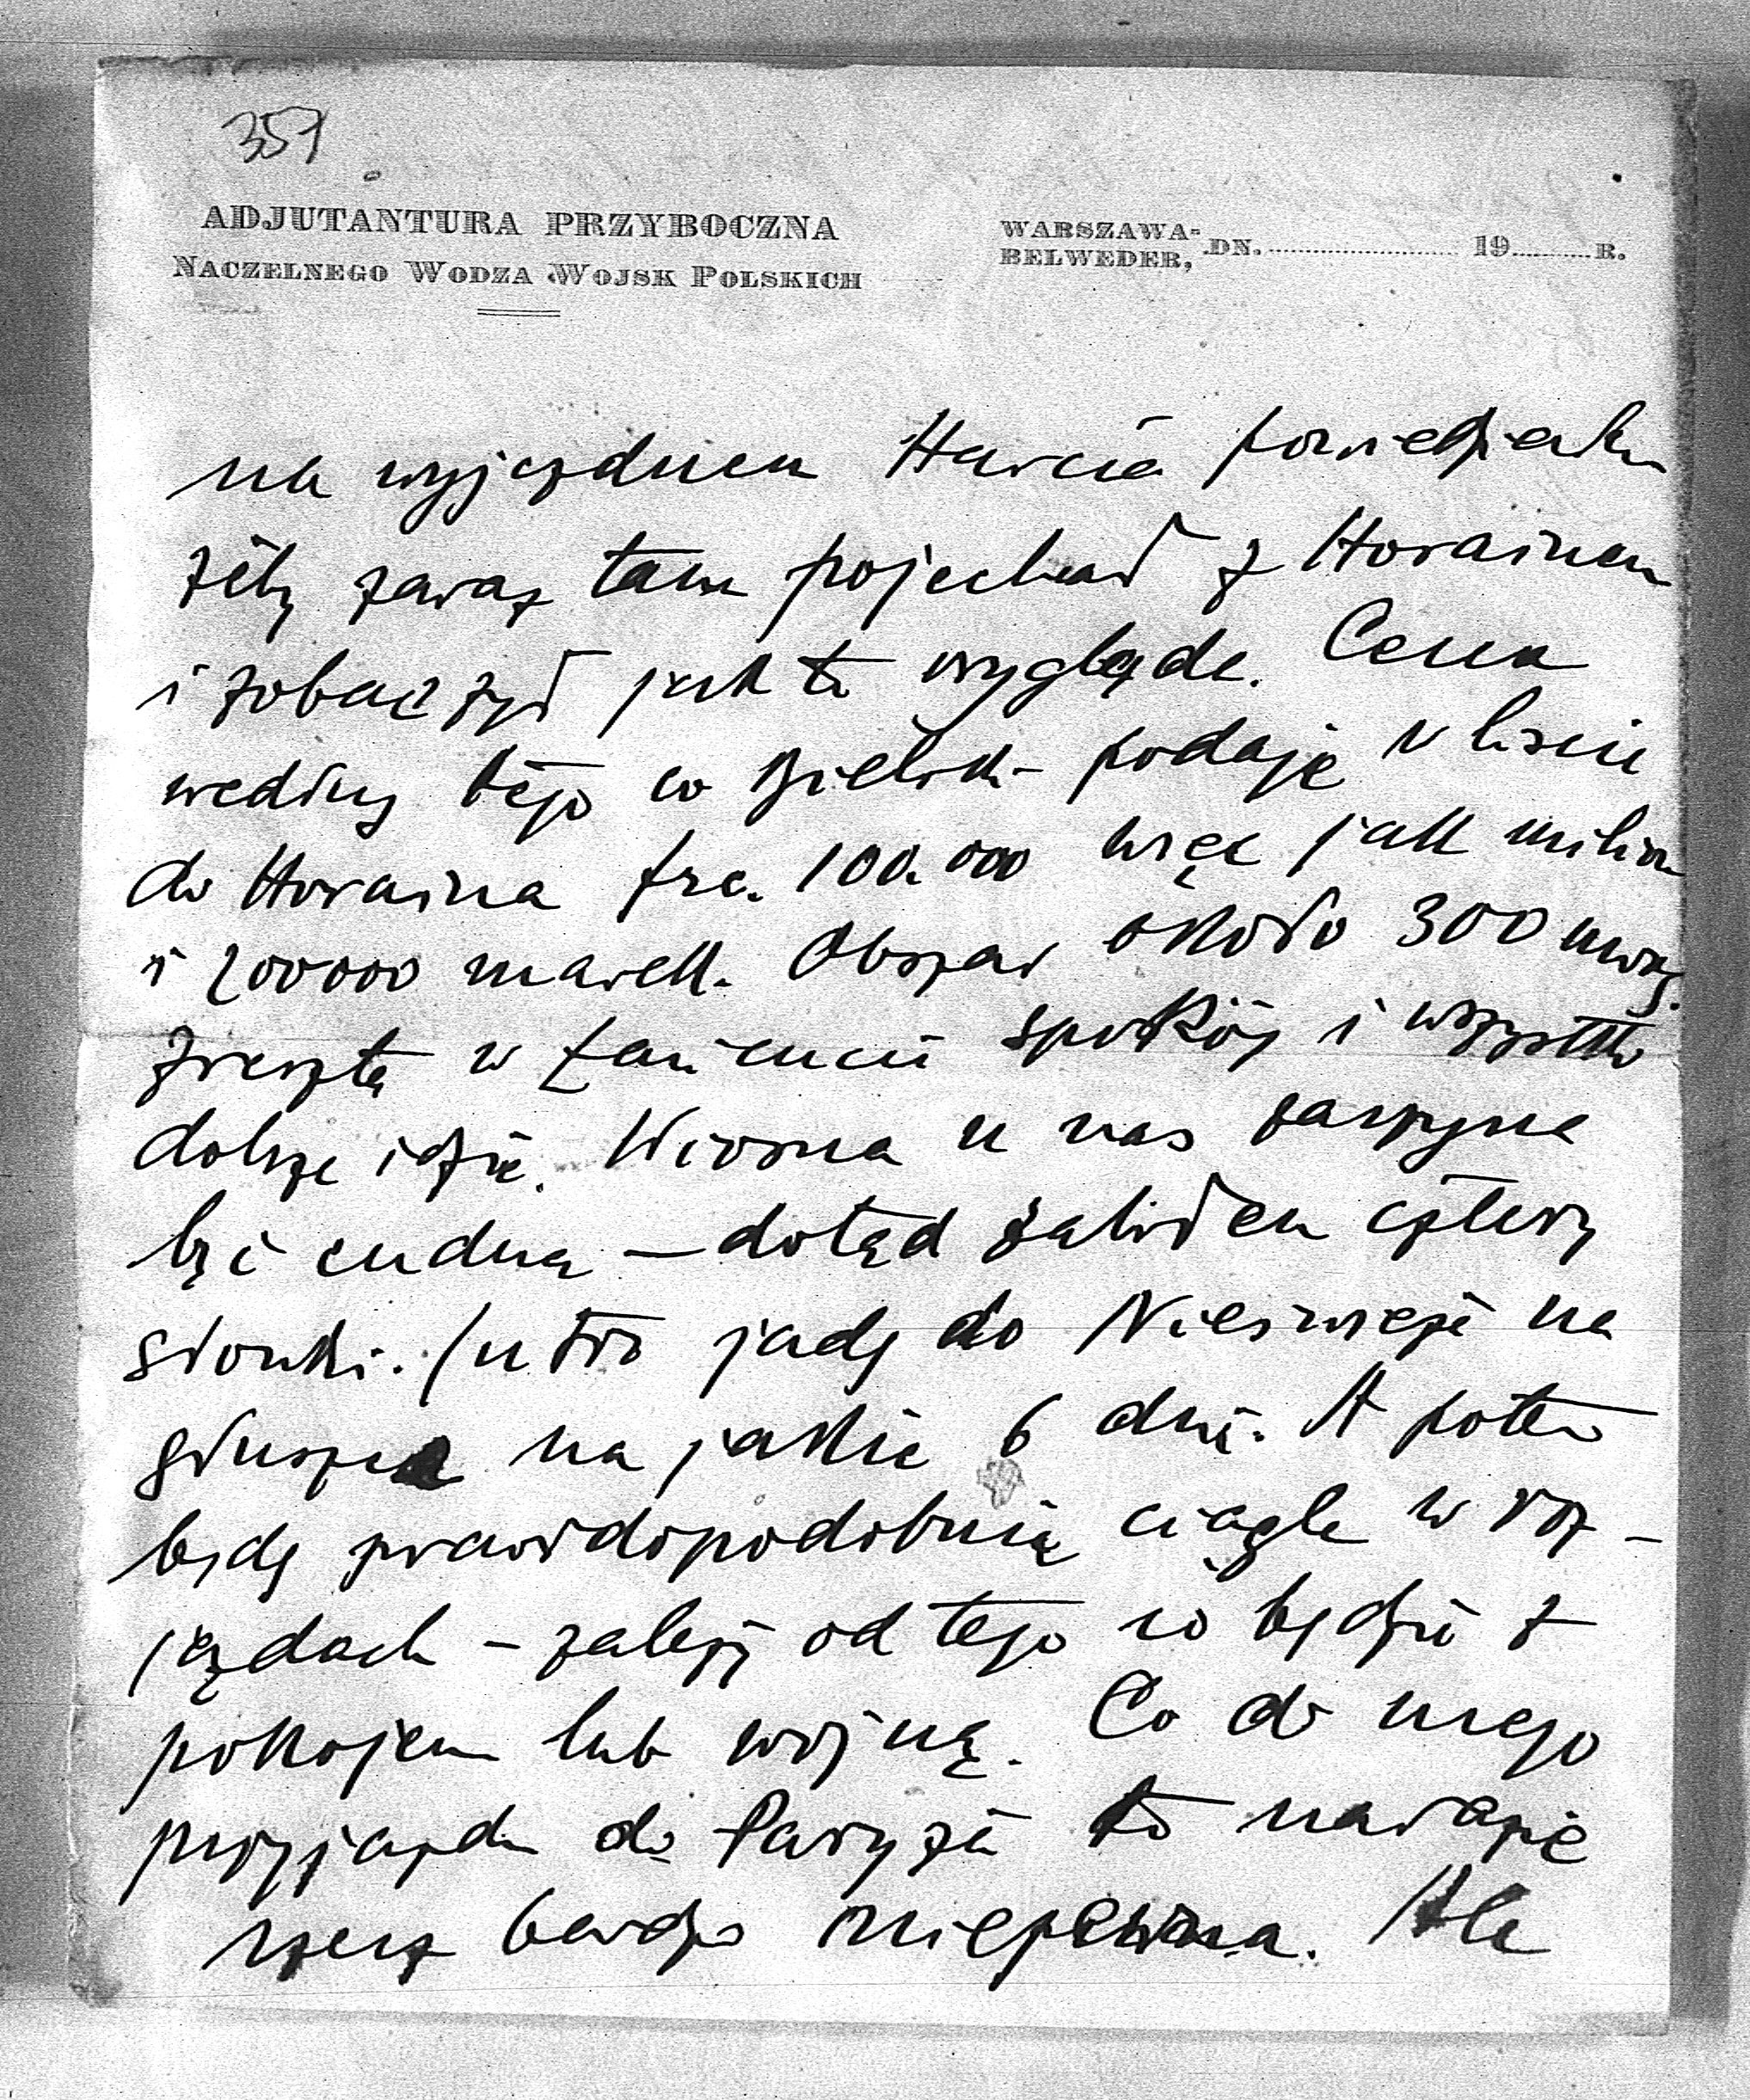 357
ADJUTANTURA PRZYBOCZNA
NACZELNEGO WODZA WOJSK POLSKICH
WARSZAWA-
BELWEDER, DN. 19 R.
na wyjezdnem powiedziałem
żeby zaraz tam pojechał z Horainem
i zobaczył jak to wygląda. Cena
według tego co Bielski podaje w liście
do Horaina frc. 100.000 więc jak milion
i 200000 marek. Obszar około 300 morg.
Zresztą w Łańcucie spokój i wszystko
dobrze idzie. Wiosna u nas zaczyna
być cudna — dotąd zabiłem cztery
słonki. Jutro jadę do Nieświeża na
głuszce na jakie 6 dni. A potem
będę prawdopodobnie ciągle w roz-
jazdach – zależy od tego co będzie z
pokojem lub wojną. Co do mego
przyjazdu do Paryża to na razie
rzecz bardzo niepewna. Ale